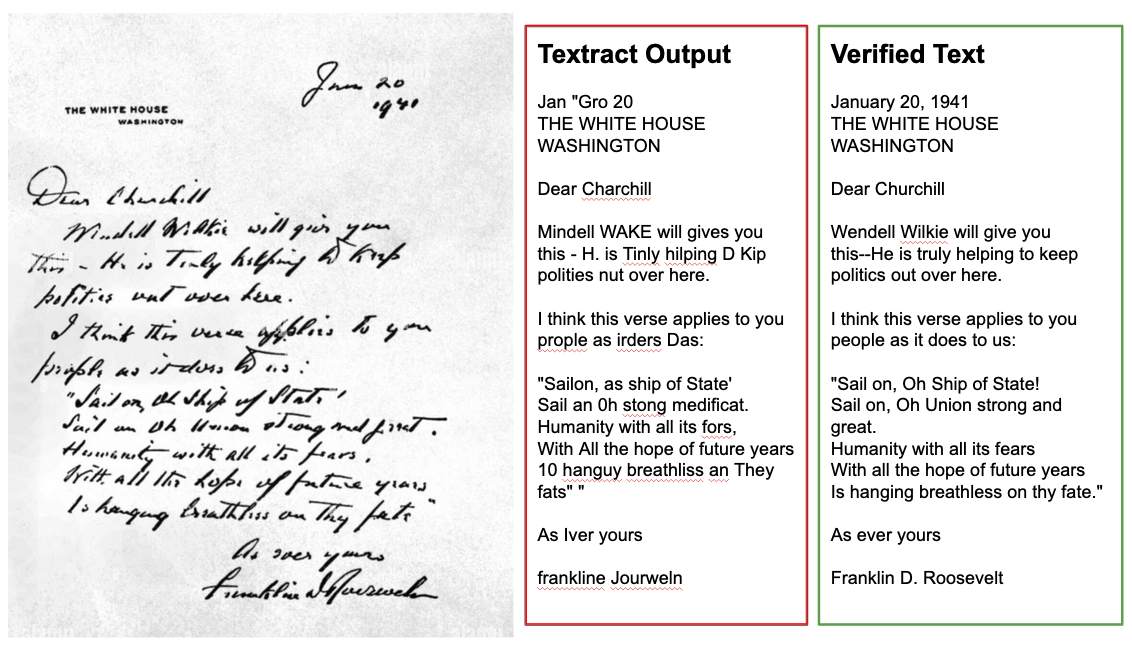 Jan 20
1941
THE WHITE HOUSE
WASHINGTON
Dear Churchill
Wendell Wilkie will give you
this - He is truly helping to keep
politics out over here.
I think this verse applies to you
people as it does to us:
"Sail on, Oh Ship of State!
Sail on Oh Union strong and great.
Humanity with all its fears,
With all the hope of future years
Is hanging breathless on thy fate"
As ever yours
Franklin D Roosevelt
Textract Output
Jan "Gro 20
THE WHITE HOUSE
WASHINGTON
Dear Charchill
Mindell WAKE will gives you
this - H. is Tinly hilping D Kip
polities nut over here.
I think this verse applies to you
prople as irders Das:
"Sailon, as ship of State'
Sail an 0h stong medificat.
Humanity with all its fors,
With All the hope of future years
10 hanguy breathliss an They
fats" "
As Iver yours
frankline Jourweln
Verified Text
January 20, 1941
THE WHITE HOUSE
WASHINGTON
Dear Churchill
Wendell Wilkie will give you
this--He is truly helping to keep
politics out over here.
I think this verse applies to you
people as it does to us:
"Sail on, Oh Ship of State!
Sail on, Oh Union strong and
great.
Humanity with all its fears
With all the hope of future years
Is hanging breathless on thy fate."
As ever yours
Franklin D. Roosevelt